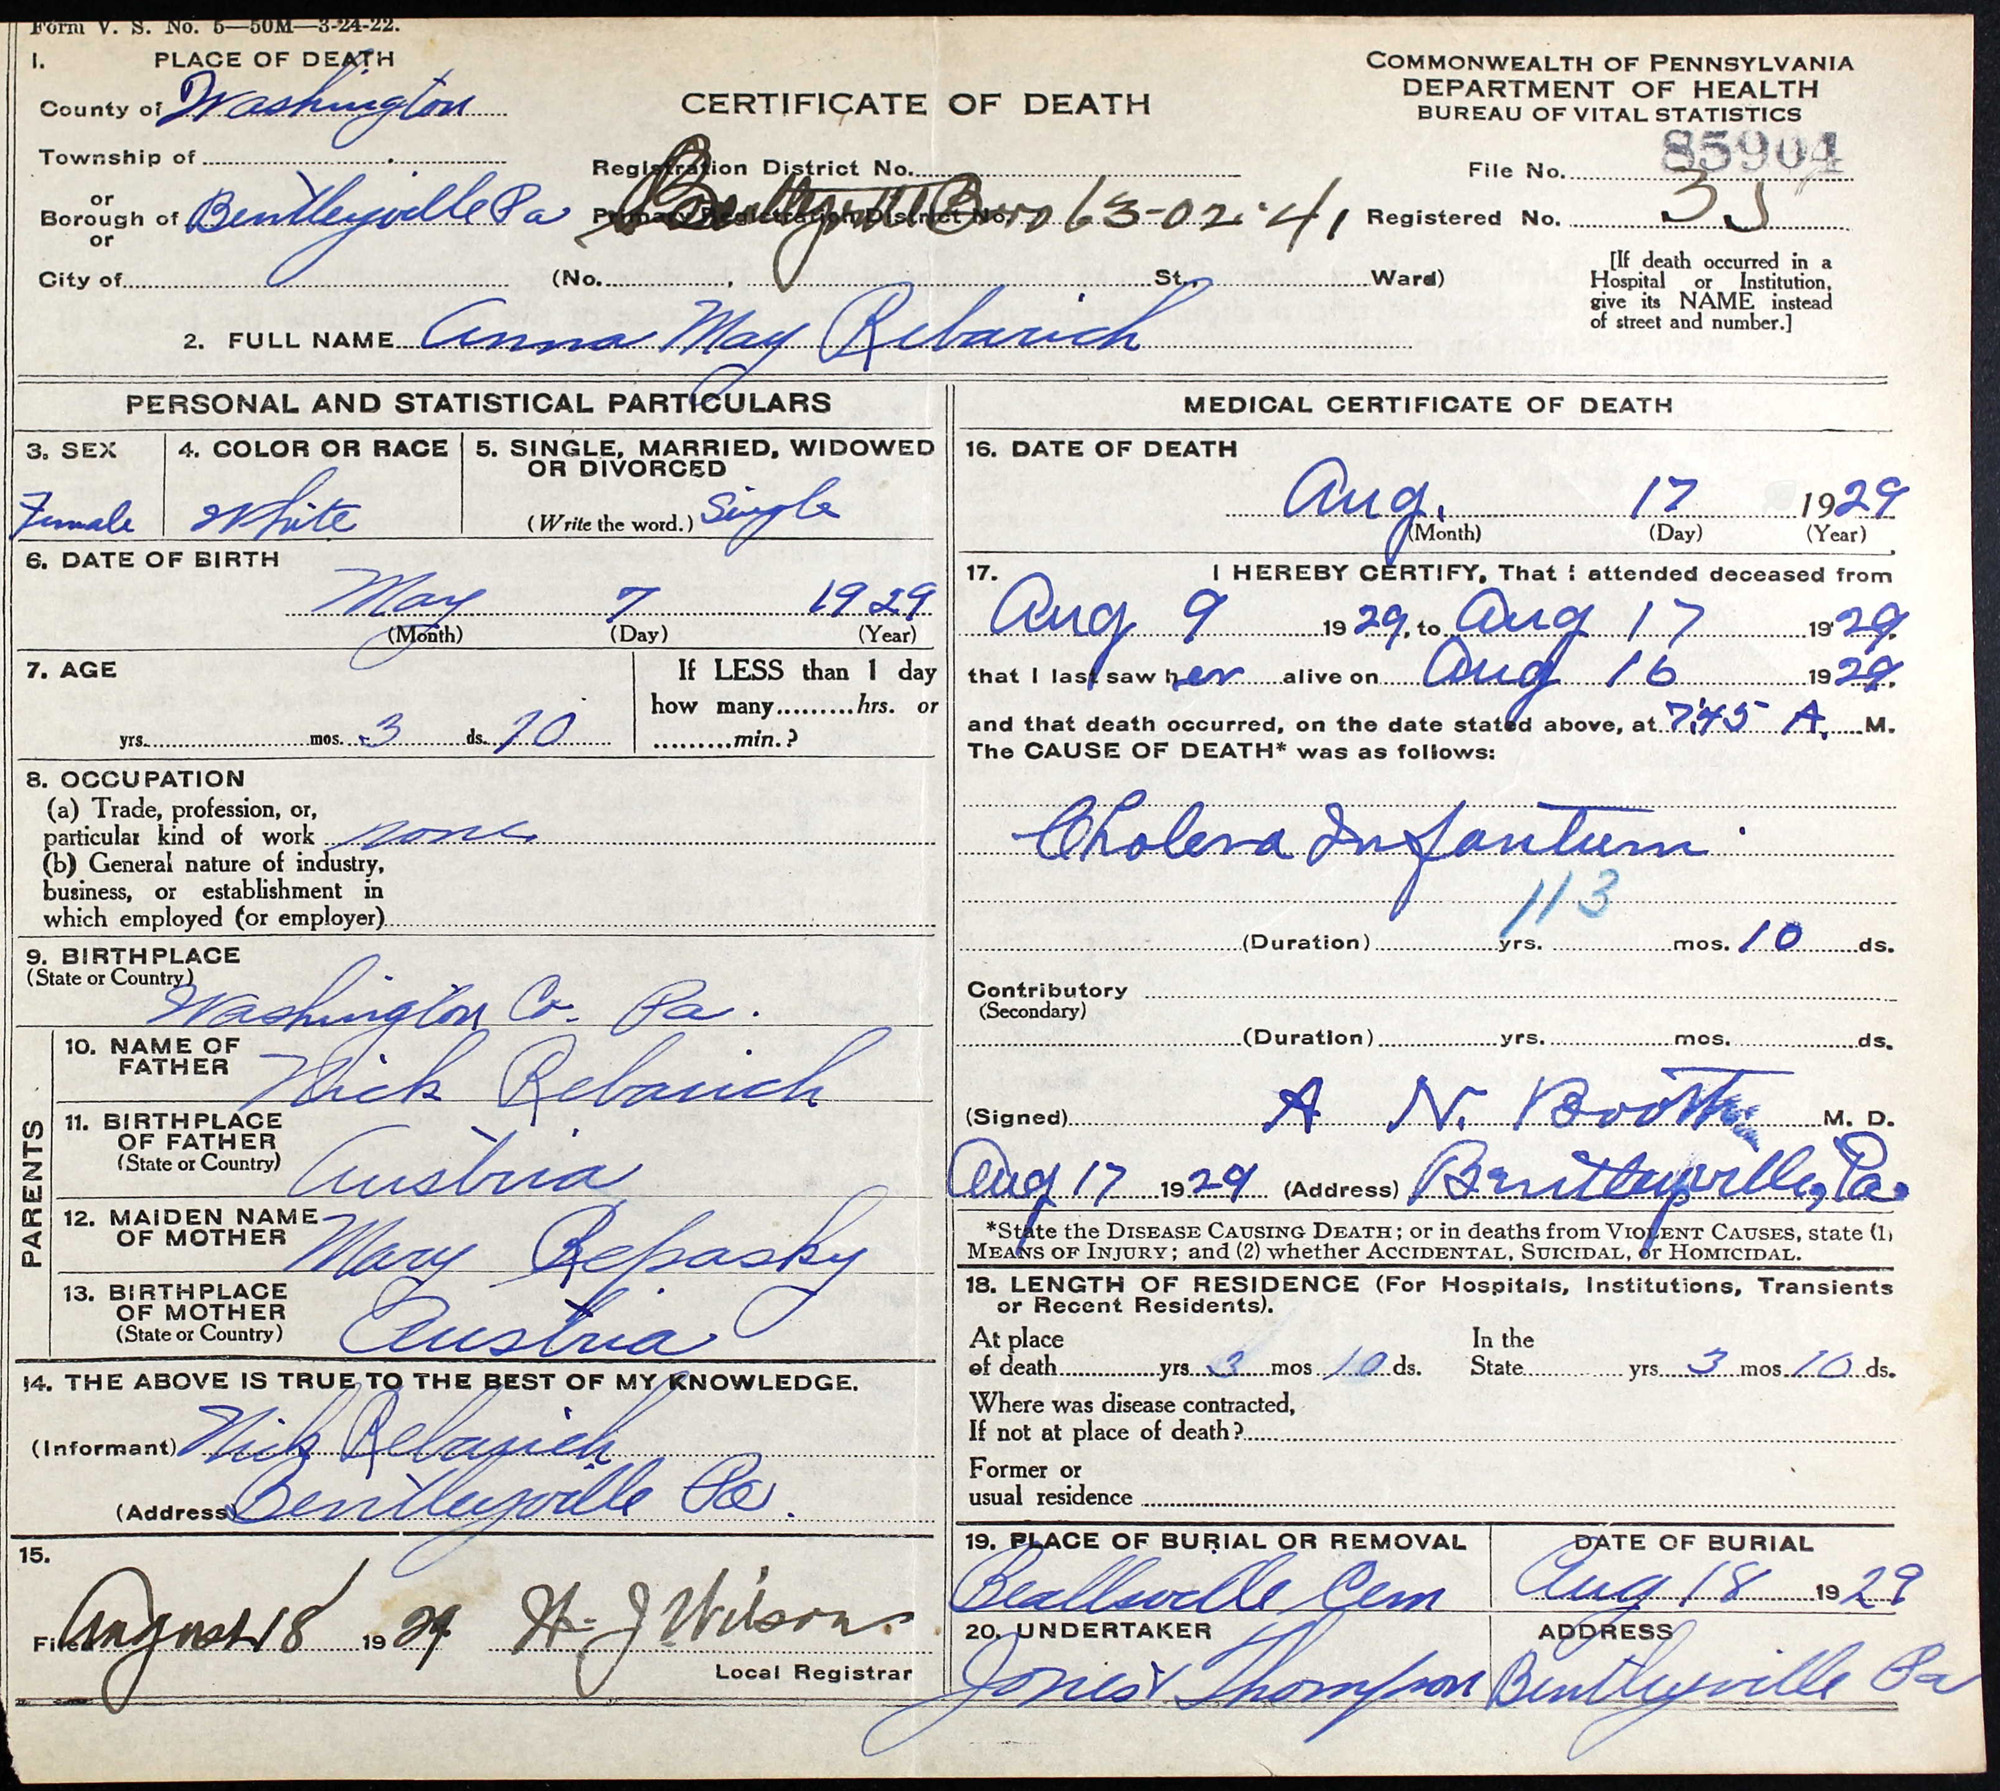 Form V. S. No. 5—50M—3-24-22.
1. PLACE OF DEATH
County of Washington
Township of
or
Borough of Bentleyville Pa
or
City of
CERTIFICATE OF DEATH
COMMONWEALTH OF PENNSYLVANIA
DEPARTMENT OF HEALTH
BUREAU OF VITAL STATISTICS
Registration District No.
File No. 85904
Primary Registration District No. 63-02-41
Registered No. 35
(No. , St., Ward)
[If death occurred in a
Hospital or Institution,
give its NAME instead
of street and number.]
2. FULL NAME Anna May Rebarich
PERSONAL AND STATISTICAL PARTICULARS
3. SEX
Female
4. COLOR OR RACE
White
5. SINGLE, MARRIED, WIDOWED
OR DIVORCED
(Write the word.) Single
6. DATE OF BIRTH
May 7 1929
(Month) (Day) (Year)
7. AGE
yrs. mos. 3 ds. 10
If LESS than 1 day
how many.........hrs. or
.........min.?
8. OCCUPATION
(a) Trade, profession, or,
particular kind of work none
(b) General nature of industry,
business, or establishment in
which employed (or employer)
9. BIRTHPLACE
(State or Country)
Washington Co. Pa.
PARENTS
10. NAME OF
FATHER
Nick Rebarich
11. BIRTHPLACE
OF FATHER
(State or Country)
Austria
12. MAIDEN NAME
OF MOTHER
Mary Repasky
13. BIRTHPLACE
OF MOTHER
(State or Country)
Austria
14. THE ABOVE IS TRUE TO THE BEST OF MY KNOWLEDGE.
(Informant) Nick Rebarich
(Address) Bentleyville Pa.
15.
Filed August 18 1929 H. J Wilson
Local Registrar
MEDICAL CERTIFICATE OF DEATH
16. DATE OF DEATH
Aug. 17 1929
(Month) (Day) (Year)
17. I HEREBY CERTIFY, That I attended deceased from
Aug 9 1929, to Aug 17 1929,
that I last saw her alive on Aug 16 1929,
and that death occurred, on the date stated above, at 7:45 A. M.
The CAUSE OF DEATH* was as follows:
Cholera Infantum
113
(Duration) yrs. mos. 10 ds.
Contributory
(Secondary)
(Duration) yrs. mos. ds.
(Signed) A N. Booth M. D.
Aug 17 1929 (Address) Bentleyville, Pa.
*State the DISEASE CAUSING DEATH; or in deaths from VIOLENT CAUSES, state (1)
MEANS OF INJURY; and (2) whether ACCIDENTAL, SUICIDAL, or HOMICIDAL.
18. LENGTH OF RESIDENCE (For Hospitals, Institutions, Transients
or Recent Residents).
At place
of death yrs 3 mos 10 ds.
In the
State yrs. 3 mos 10 ds.
Where was disease contracted,
If not at place of death?
Former or
usual residence
19. PLACE OF BURIAL OR REMOVAL
Beallsville Cem
DATE OF BURIAL
Aug 18 1929
20. UNDERTAKER
Jones & Thompson
ADDRESS
Bentleyville Pa